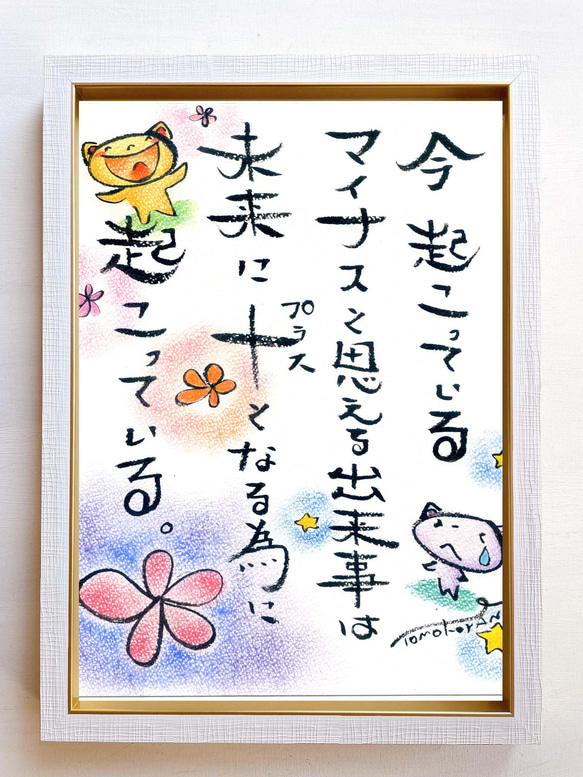 今 起こっている
マイナスと思える出来事は
未来に十となる為に
プラス
起こっている。